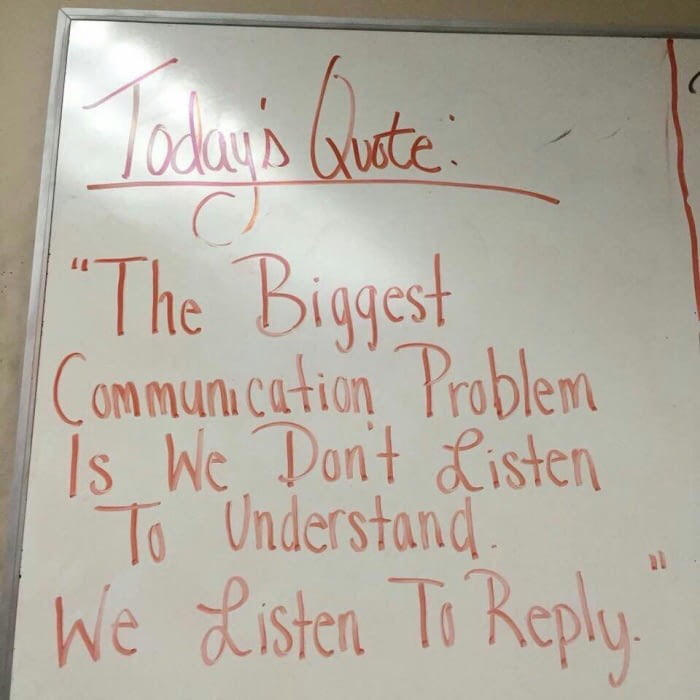 Today's Quote:
"The Biggest
Communication Problem
Is We Don't Listen
To Understand.
We Listen To Reply."